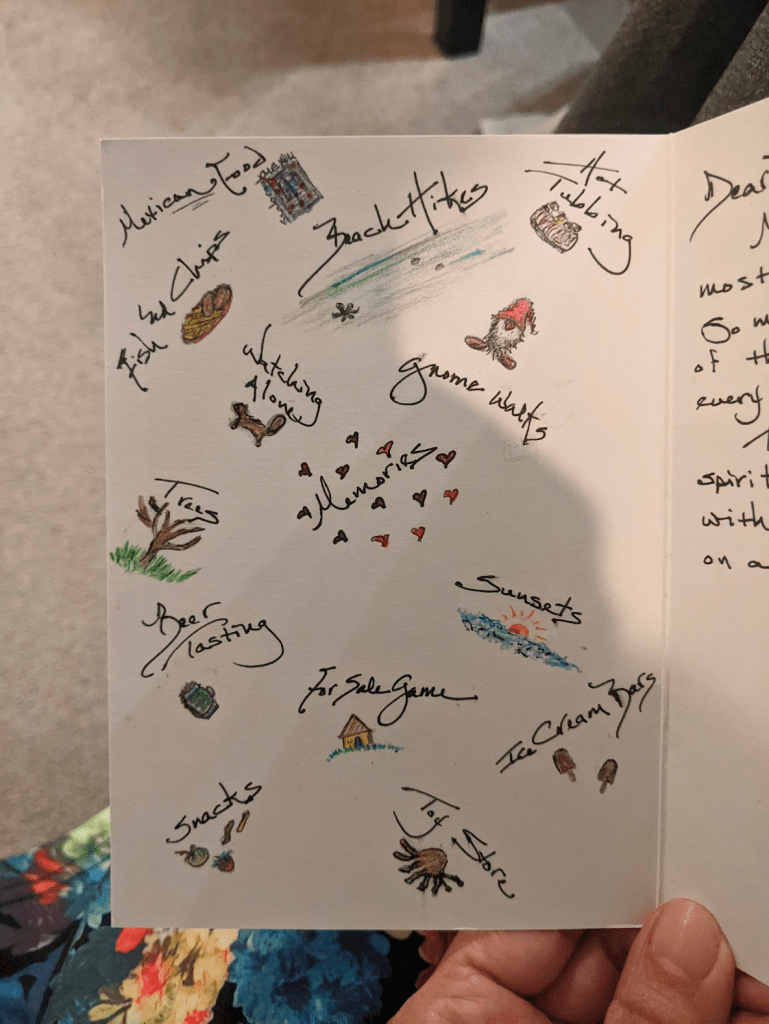 Mexican Food
Beach Hikes
Hot
Tubbing
Fish and Chips
Watching
Alone
Gnome walks
Memories
Trees
Sunsets
Beer
Tasting
For Sale Game
Ice Cream Bars
Snacks
Toy Store
Dear
M
most
So m
of th
every
T
spirit
with
on a